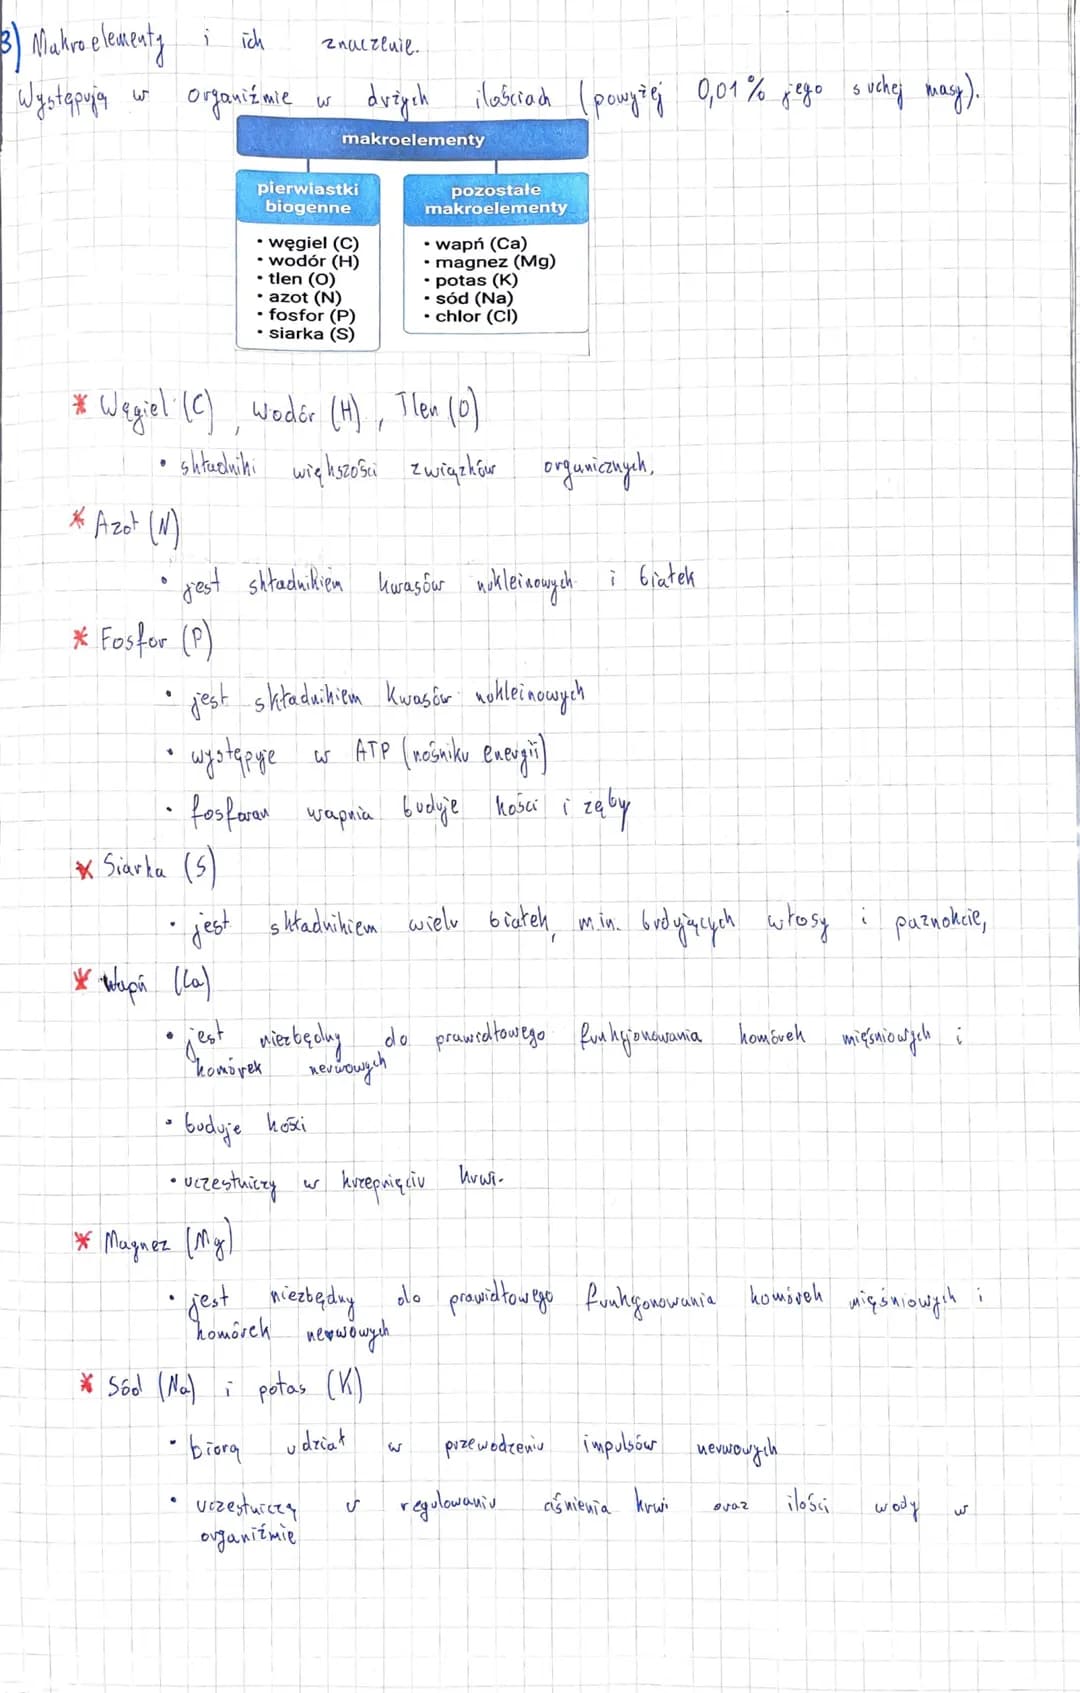 3) Makroelementy i ich znaczenie.
Występują w organiźmie w dużych ilościach (powyżej 0,01% jego suchej masy).
makroelementy
pierwiastki biogenne
• węgiel (C)
• wodór (H)
• tlen (O)
• azot (N)
• fosfor (P)
• siarka (S)
pozostałe makroelementy
• wapń (Ca)
• magnez (Mg)
• potas (K)
• sód (Na)
• chlor (Cl)
* Węgiel (C), Wodór (H), Tlen (O)
• składniki większości związków organicznych,
* Azot (N)
• jest składnikiem kwasów nukleinowych i białek
* Fosfor (P)
• jest składnikiem kwasów nukleinowych
• występuje w ATP (nośniku energii)
• fosforan wapnia buduje kości i zęby
* Siarka (S)
• jest składnikiem wielu białek, m.in. budujących włosy i paznokcie,
* Wapń (Ca)
• jest niezbędny do prawidłowego funkcjonowania komórek mięśniowych i
komórek nerwowych
• buduje kości
• uczestniczy w krzepnięciu krwi.
* Magnez (Mg)
• jest niezbędny do prawidłowego funkcjonowania komórek mięśniowych i
komórek nerwowych
* Sód (Na) i potas (K)
• biorą udział w przewodzeniu impulsów nerwowych
• uczestniczą w regulowaniu ciśnienia krwi oraz ilości wody w
organiźmie